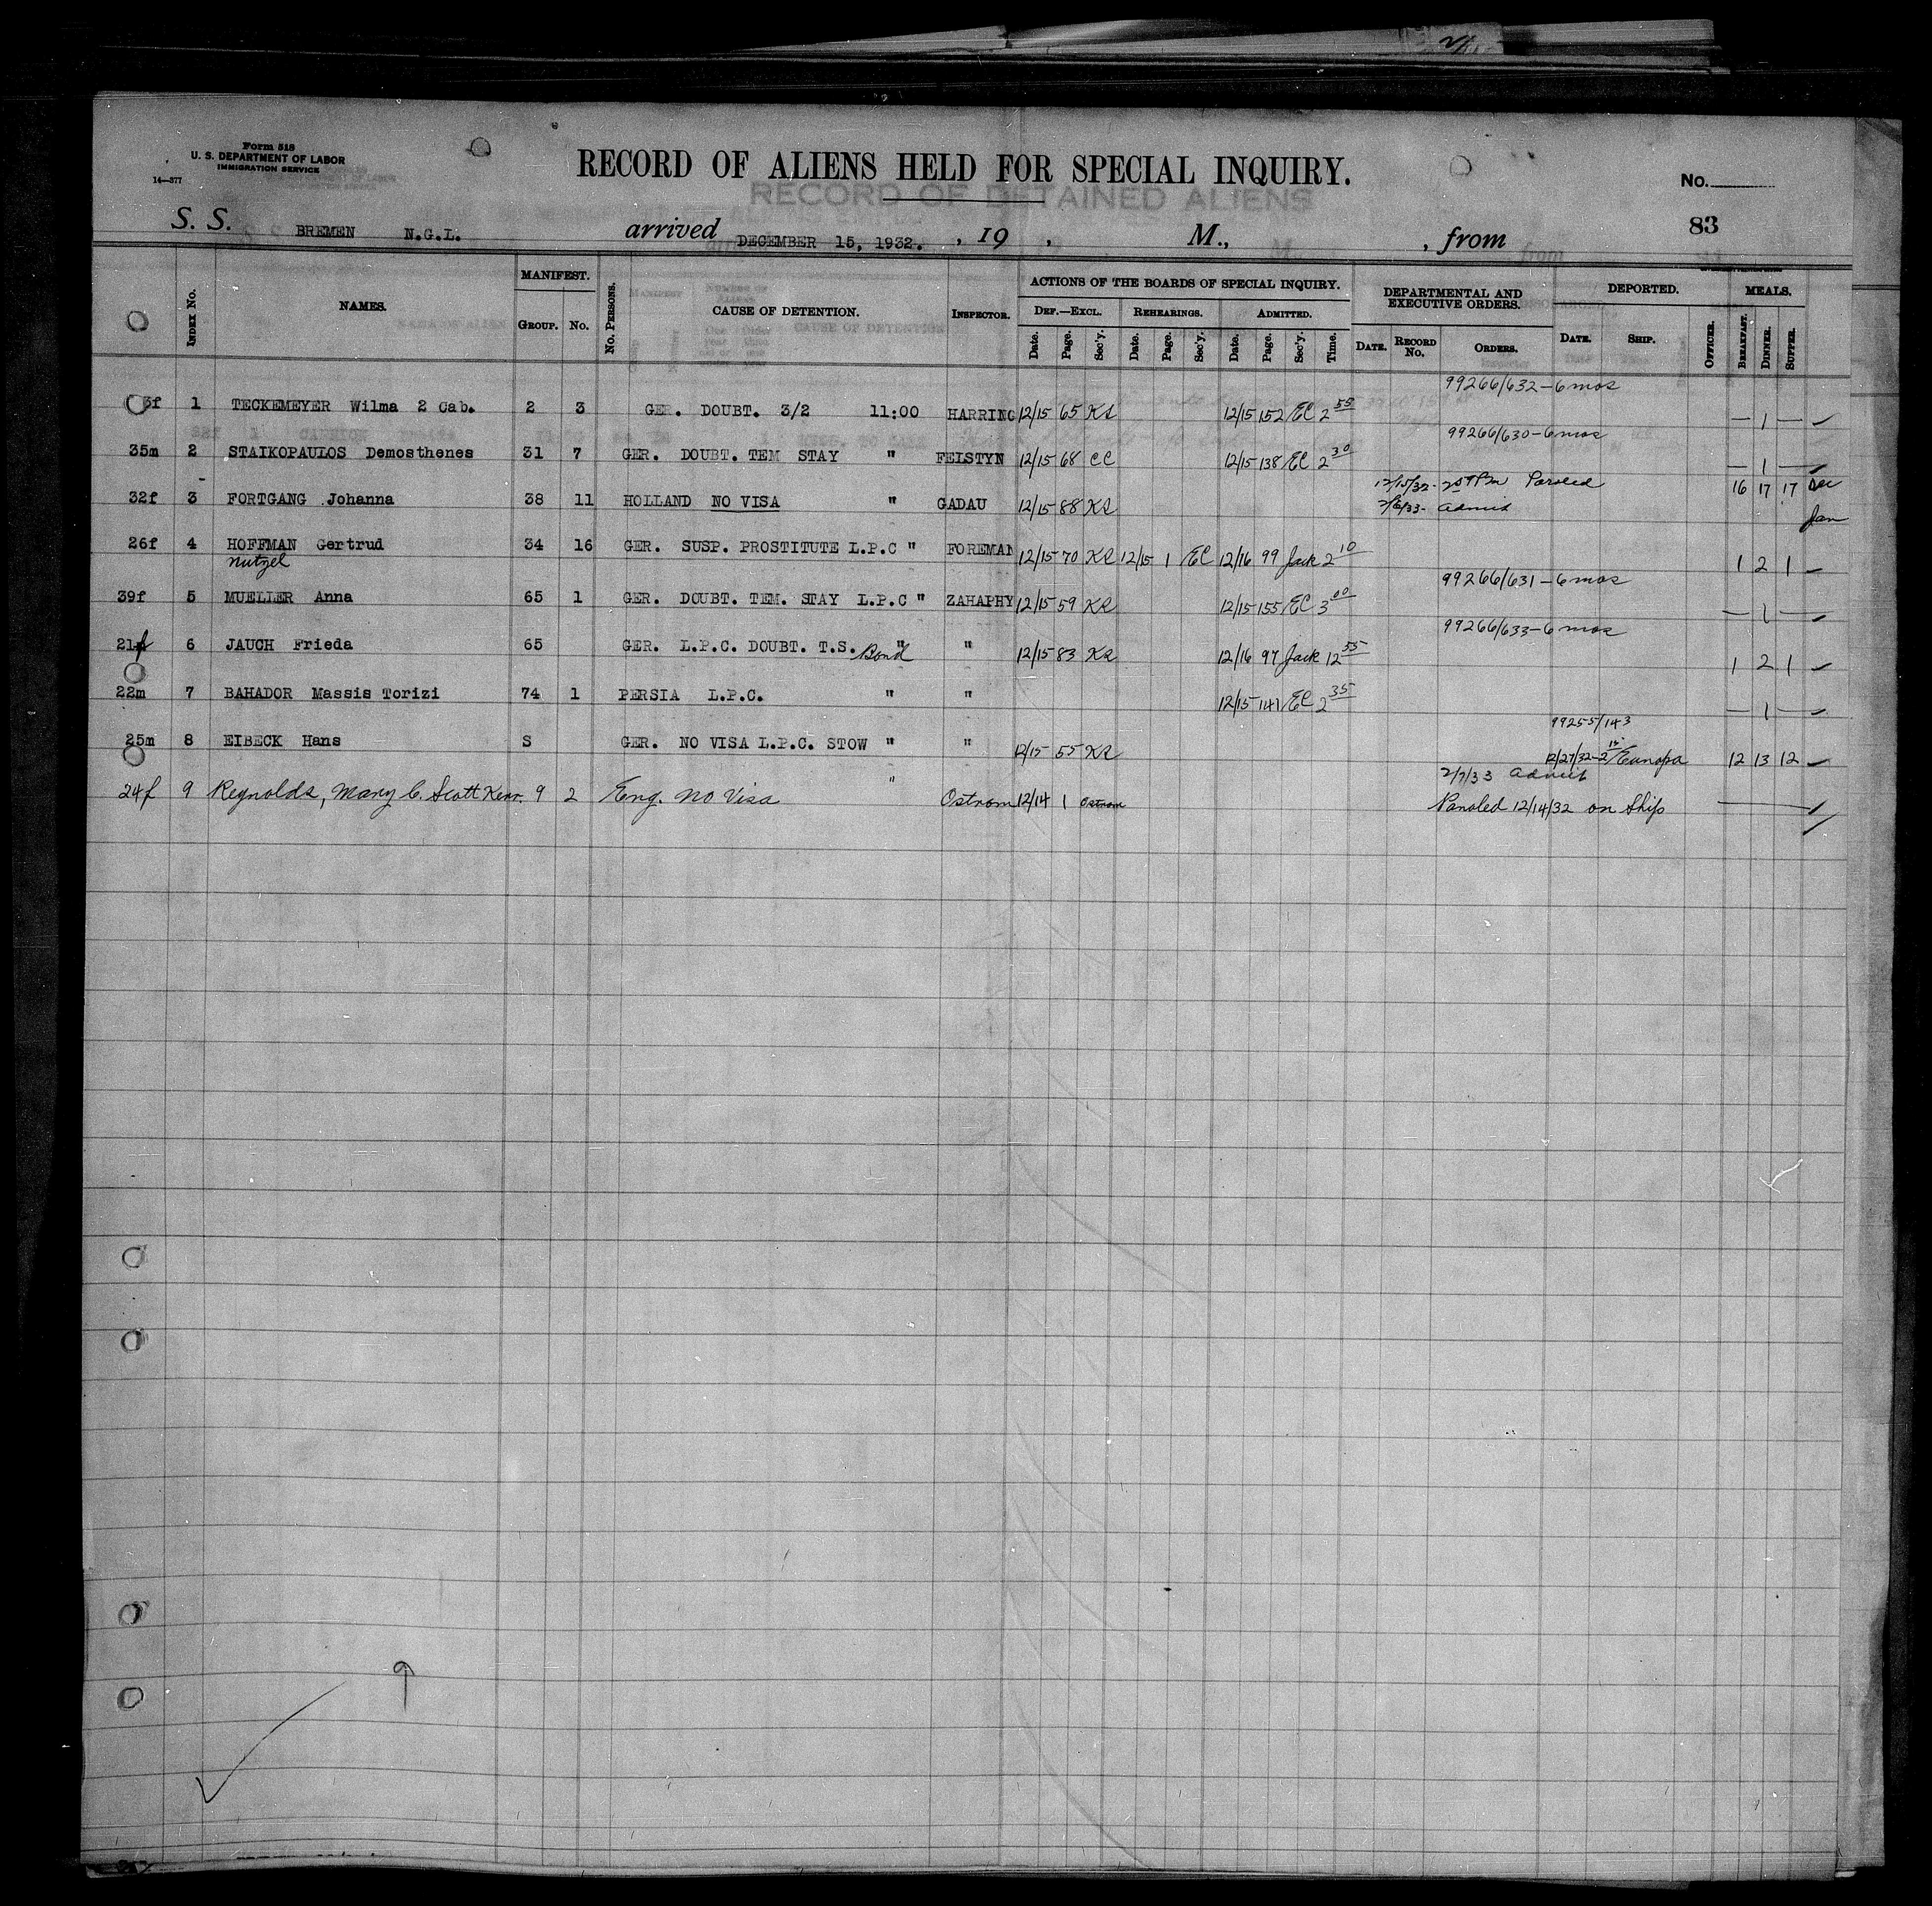 Form 518
U. S. DEPARTMENT OF LABOR
IMMIGRATION SERVICE
14—377
RECORD OF ALIENS HELD FOR SPECIAL INQUIRY.
RECORD OF DETAINED ALIENS
No.
83
S. S. BREMEN N.G.L. arrived DECEMBER 15, 1932. , 19 , M., , from
INDEX No. NAMES. MANIFEST. GROUP. No. No. PERSONS. CAUSE OF DETENTION. INSPECTOR. ACTIONS OF THE BOARDS OF SPECIAL INQUIRY. DEF.—EXCL. Date. Page. Sec'y. REHEARINGS. Date. Page. Sec'y. ADMITTED. Date. Page. Sec'y. Time. DEPARTMENTAL AND EXECUTIVE ORDERS. DATE. RECORD No. ORDERS. DEPORTED. DATE. SHIP. OFFICER. MEALS. BREAKFAST. DINNER. SUPPER.
99266/632-6mos
3f 1 TECKEMEYER Wilma 2 Cab. 2 3 GER. DOUBT. 3/2 11:00 HARRING 12/15 65 KS 12/15 152 EC 2 55 — 1 —
99266/630-6mos
35m 2 STAIKOPAULOS Demosthenes 31 7 GER. DOUBT. TEM STAY " FELSTYN 12/15 68 CC 12/15 138 EC 2 30 — 1 —
12/15/32- Paroled
32f 3 FORTGANG Johanna 38 11 HOLLAND NO VISA " GADAU 12/15 88 KS 2/6/33- Admit 16 17 17 Dec
Jan
26f 4 HOFFMAN Gertrud 34 16 GER. SUSP. PROSTITUTE L.P.C " FOREMAN 12/15 70 KS 12/15 1 EC 12/16 99 Jack 2 10 1 2 1
Nutzel
99266/631-6mos
39f 5 MUELLER Anna 65 1 GER. DOUBT. TEM. STAY L.P.C " ZAHAPHY 12/15 59 KS 12/15 155 EC 3 00 — 1 —
99266/633-6mos
21f 6 JAUCH Frieda 65 GER. L.P.C. DOUBT. T.S. Bond " " 12/15 83 KS 12/16 97 Jack 12 55 1 2 1
22m 7 BAHADOR Massis Torizi 74 1 PERSIA L.P.C. " " 12/15 141 EC 2 35 — 1 —
99255/143
25m 8 EIBECK Hans S GER. NO VISA L.P.C. STOW " " 12/15 55 KS 12/27/32-2 Europa 12 13 12
2/7/33 Admit
24f 9 Reynolds, Mary C. Scott Kerr. 9 2 Eng. No Visa " Ostrom 12/14 1 Ostrom Paroled 12/14/32 on Ship